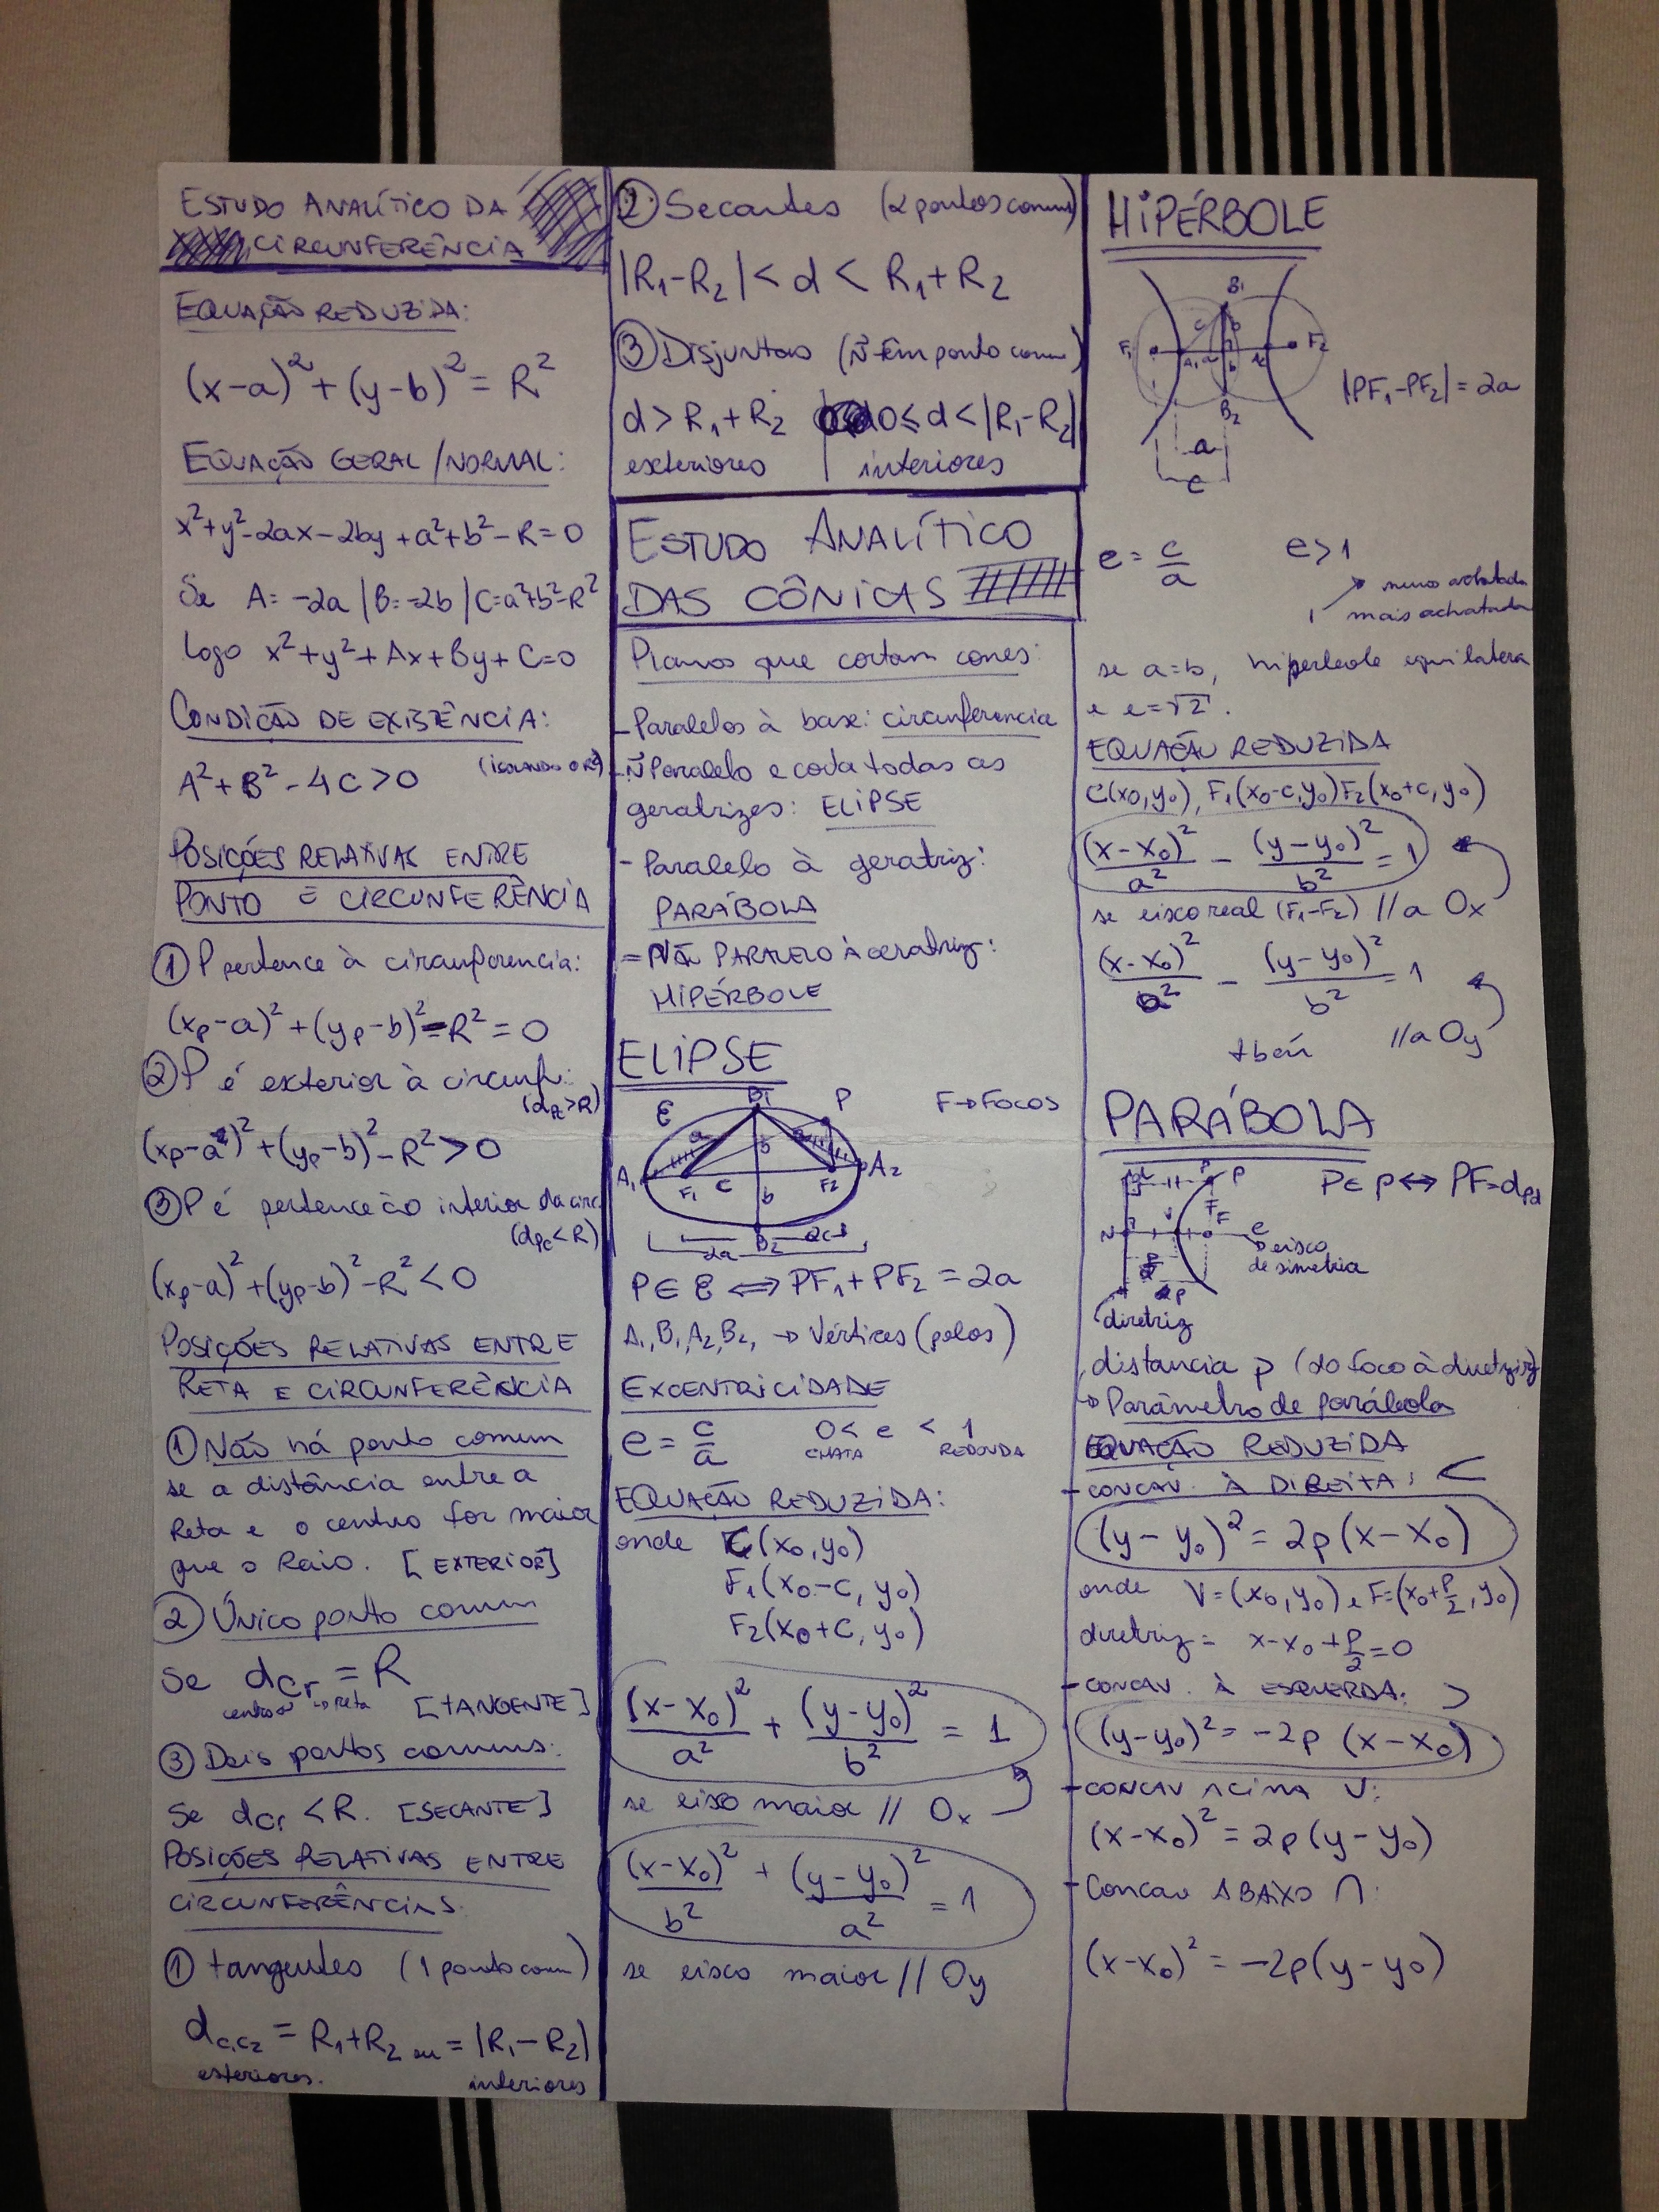 ESTUDO ANALÍTICO DA
CIRCUNFERÊNCIA
EQUAÇÃO REDUZIDA:
(x-a)²+(y-b)²=R²
EQUAÇÃO GERAL/NORMAL:
x²+y²-2ax-2by+a²+b²-R=0
Se A=-2a | B=-2b | C=a²+b²-R²
logo x²+y²+Ax+By+C=0
CONDIÇÃO DE EXISTÊNCIA:
A²+B²-4C>0 (ISOLANDO O R²)
POSIÇÕES RELATIVAS ENTRE
PONTO E CIRCUNFERÊNCIA
① P pertence à circunferencia:
(xp-a)²+(yp-b)²-R²=0
② P é exterior à circunf:
(dPc>R)
(xp-a)²+(yp-b)²-R²>0
③ P é pertence ao interior da circ.
(dPc<R)
(xp-a)²+(yp-b)²-R²<0
POSIÇÕES RELATIVAS ENTRE
RETA E CIRCUNFERÊNCIA
① Não há ponto comum
se a distância entre a
Reta e o centro for maior
que o Raio. [EXTERIOR]
② Único ponto comum
Se dcr = R
centro reta [TANGENTE]
③ Dois pontos comuns:
Se dcr <R. [SECANTE]
POSIÇÕES RELATIVAS ENTRE
CIRCUNFERÊNCIAS
① tangentes (1 ponto com)
dc₁c₂ = R₁+R₂ ou = |R₁-R₂|
exteriores. interiores
② Secantes (2 pontos comuns)
|R₁-R₂|< d < R₁+R₂
③ Disjuntas (Ñ têm ponto comum)
d>R₁+R₂ | 0≤d<|R₁-R₂|
exteriores | interiores
ESTUDO ANALÍTICO
DAS CÔNICAS
Planos que cortam cones:
-Paralelos à base: circunferencia
-Ñ Paralelo e corta todas as
geratrizes: ELIPSE
- Paralelo à geratriz:
PARÁBOLA
- NÃO PARALELO À Geratriz:
HIPÉRBOLE
ELIPSE
F→FOCOS
ε B₁ P
a b a
A₁ F₁ C b F₂ A₂
B₂ 2c
2a
P∈ε ⟺ PF₁+PF₂ = 2a
A₁,B₁,A₂,B₂, → Vértices (polos)
EXCENTRICIDADE
e = c/a 0< e < 1
CHATA REDONDA
EQUAÇÃO REDUZIDA:
onde C(x₀,y₀)
F₁(x₀-c, y₀)
F₂(x₀+c, y₀)
(x-x₀)²/a² + (y-y₀)²/b² = 1
se eixo maior // Ox
(x-x₀)²/b² + (y-y₀)²/a² = 1
se eixo maior // Oy
HIPÉRBOLE
B₁
c b
F₁ A₁ a b F₂
B₂
|PF₁-PF₂| = 2a
a
c
e = c/a e>1
menos achatada
1 mais achatada
se a=b, hiperbole equilatera
e e=√2.
EQUAÇÃO REDUZIDA
C(x₀,y₀), F₁(x₀-c,y₀) F₂(x₀+c, y₀)
(x-x₀)²/a² - (y-y₀)²/b² = 1
se eixo real (F₁-F₂) //a Ox
(x-x₀)²/a² - (y-y₀)²/b² = 1
//a Oy
PARÁBOLA
P∈p↔ PF=dPd
P
N V F e
eixo
de simetria
2p
diretriz
distancia p (do foco à diretriz)
→ Parâmetro de parábola
EQUAÇÃO REDUZIDA
- CONCAV. À DIREITA: ⊂
(y-y₀)²=2p(x-x₀)
onde V=(x₀,y₀) e F=(x₀+p/2, y₀)
diretriz = x-x₀+p/2=0
- CONCAV. À ESQUERDA: ⊃
(y-y₀)²=-2p (x-x₀)
- CONCAV ACIMA ∪:
(x-x₀)²=2p(y-y₀)
- Concav ABAIXO ∩:
(x-x₀)²=-2p(y-y₀)